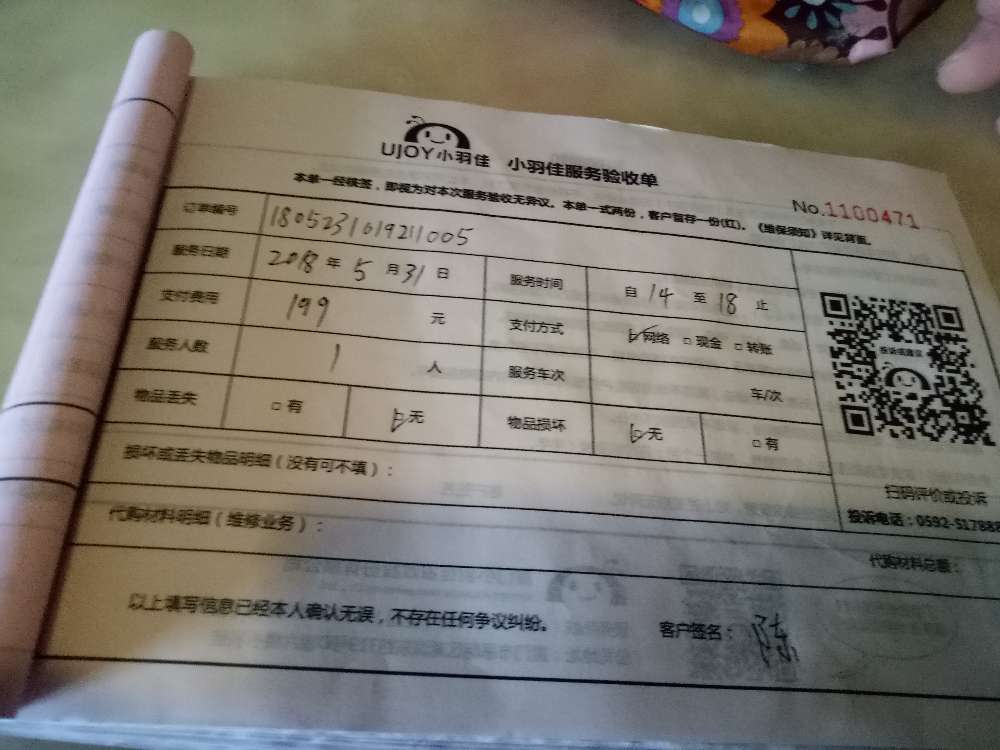 UJOY小羽佳 小羽佳服务验收单
No.1100471
本单一经核签，即视为对本次服务验收无异议。本单一式两份，客户留存一份(红)。《维保须知》详见背面。
订单编号 180523161921005
服务日期 2018 年 5 月 31 日 服务时间 自 14 至 18 止
支付费用 199 元 支付方式 ☑网络 □现金 □转账
服务人数 1 人 服务车次 车/次
物品丢失 □有 ☑无 物品损坏 ☑无 □有
投诉或建议
扫码评价或投诉
投诉电话：0592-517888
损坏或丢失物品明细（没有可不填）：
代购材料明细（维修业务）：
代购材料总额：
以上填写信息已经本人确认无误，不存在任何争议纠纷。 客户签名：陈